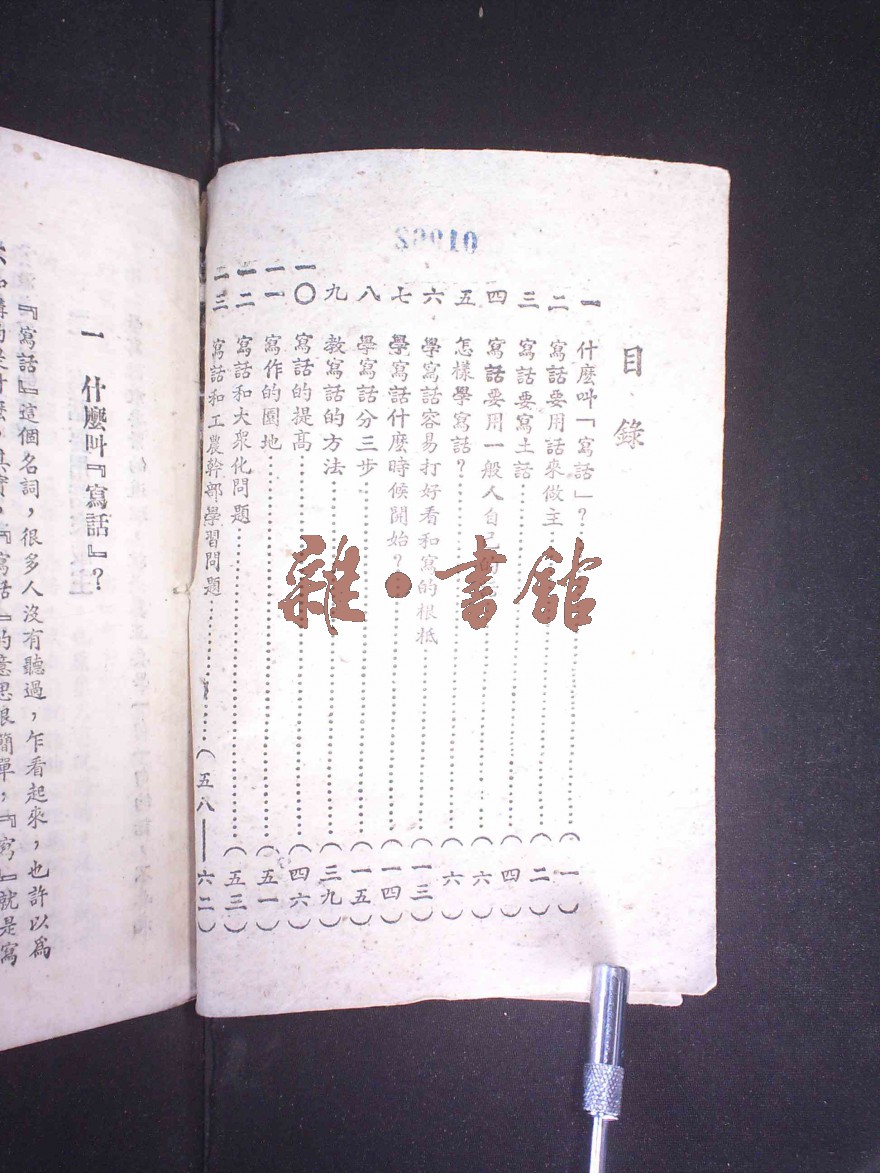 目錄
一 什麼叫「寫話」?……(一)
二 寫話要用話來做主……(二)
三 寫話要寫土話……(四)
四 寫話要用一般人自己的……(六)
五 怎樣學寫話?……(六)
六 學寫話容易打好看和寫的根柢……(一三)
七 學寫話什麼時候開始?……(一四)
八 學寫話分三步……(一五)
九 教寫話的方法……(三九)
一〇 寫話的提高……(四六)
一一 寫作的園地……(五一)
一二 寫話和大衆化問題……(五三)
一三 寫話和工農幹部學習問題……(五八——六二)
雜·書館
一 什麼叫『寫話』?
『寫話』這個名詞,很多人沒有聽過,乍看起來,也許以爲
『寫話』的意思很簡單,『寫』就是寫